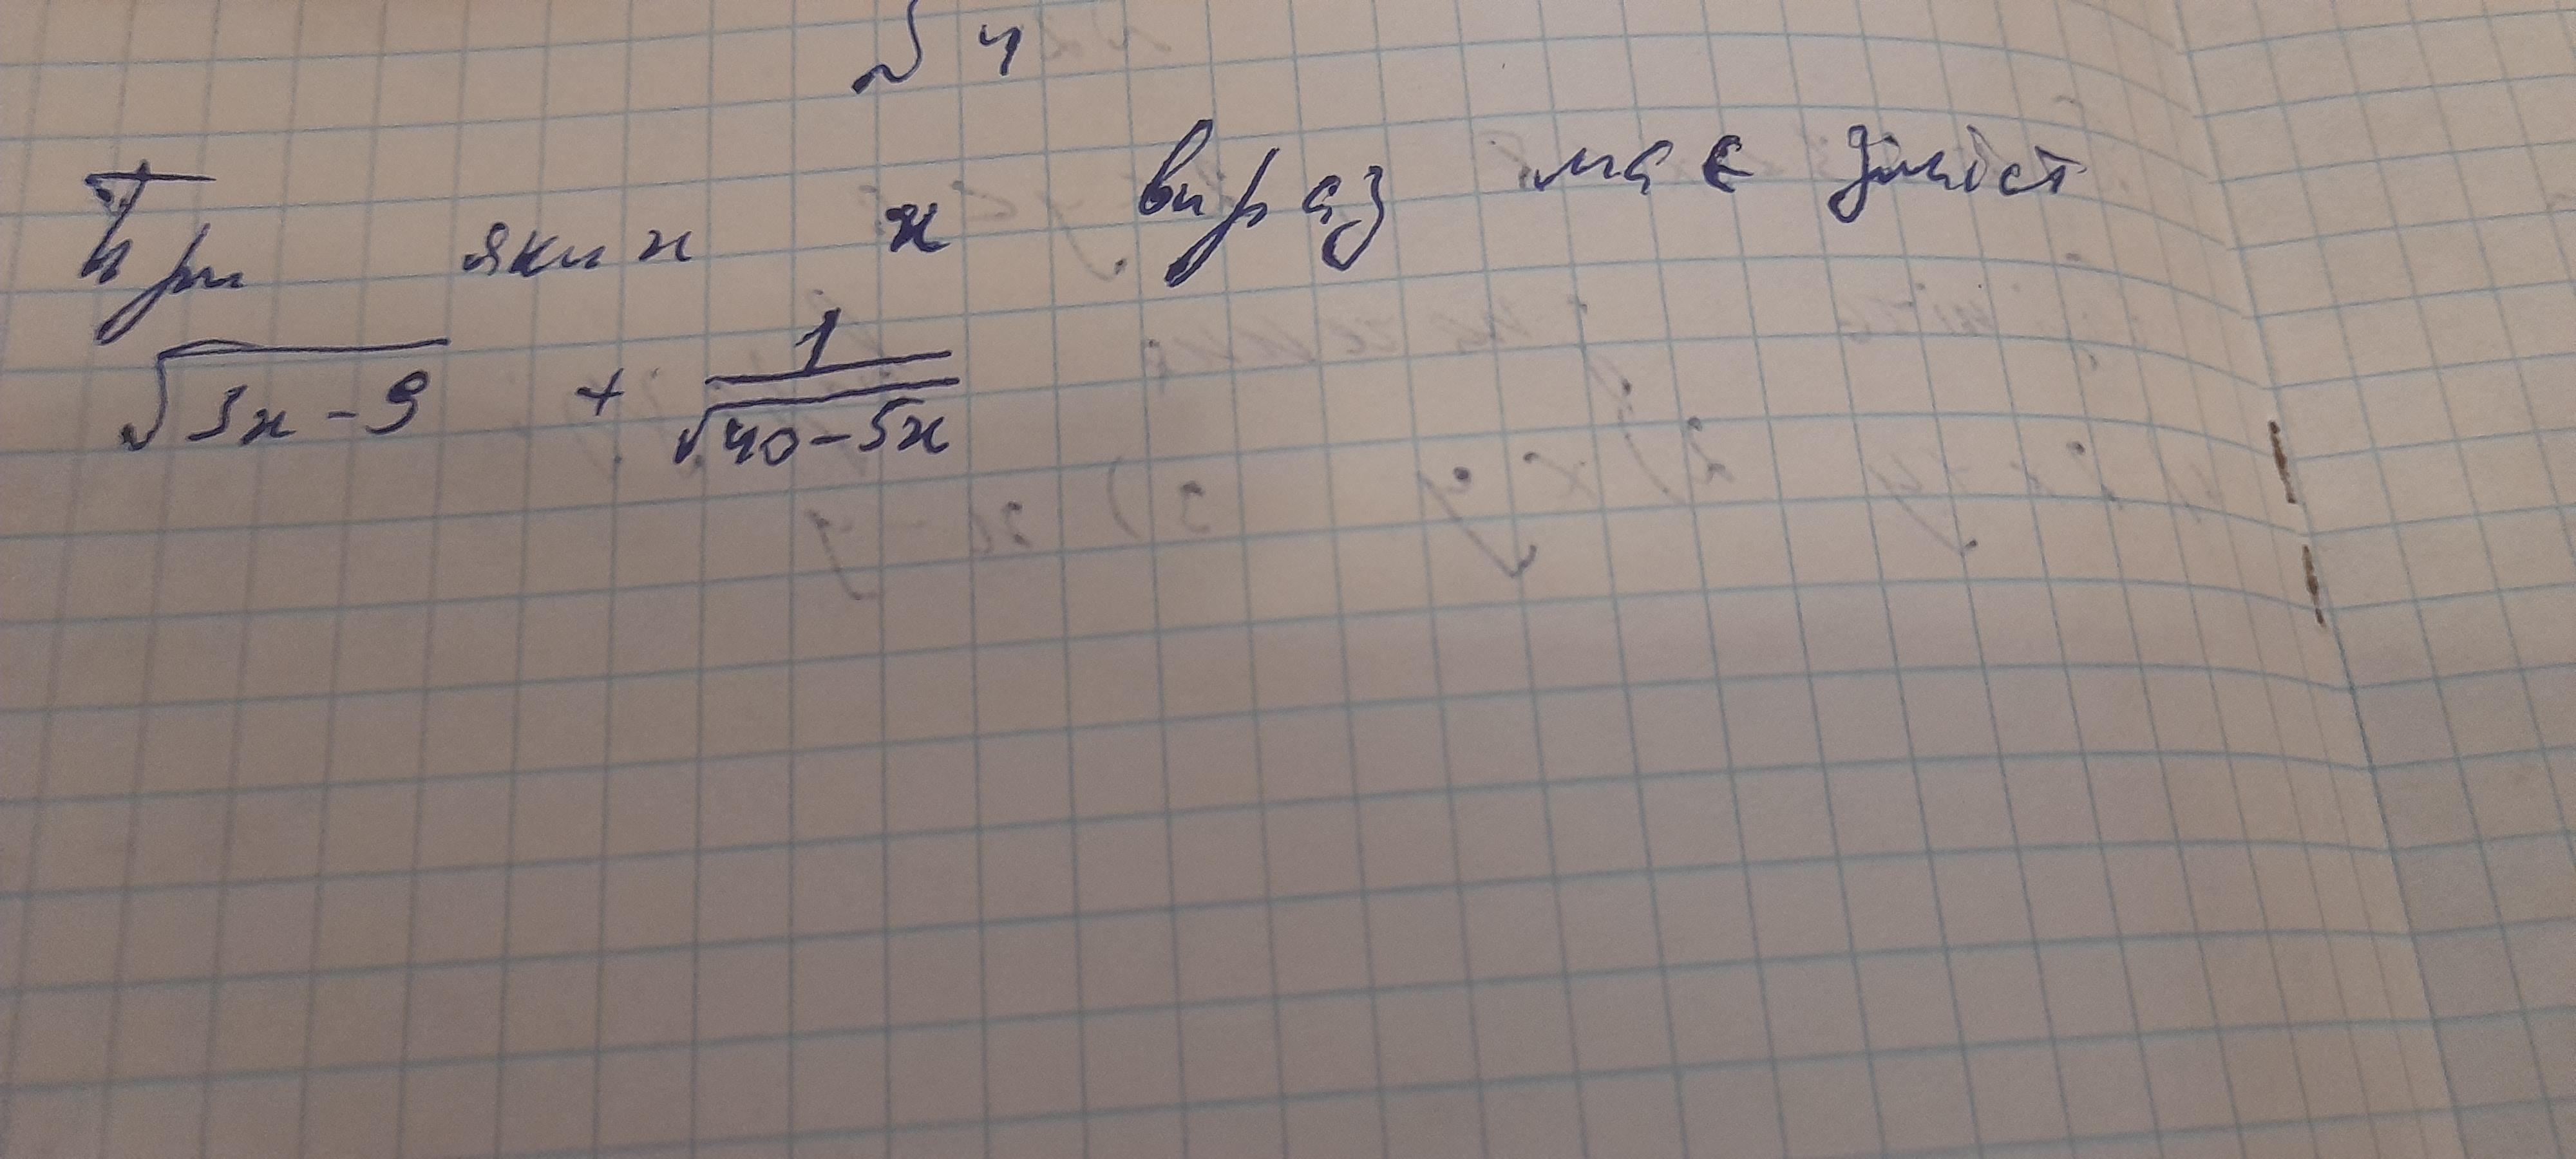 № 4
При яких x вираз має зміст
√(3x - 9) + 1/√(40 - 5x)